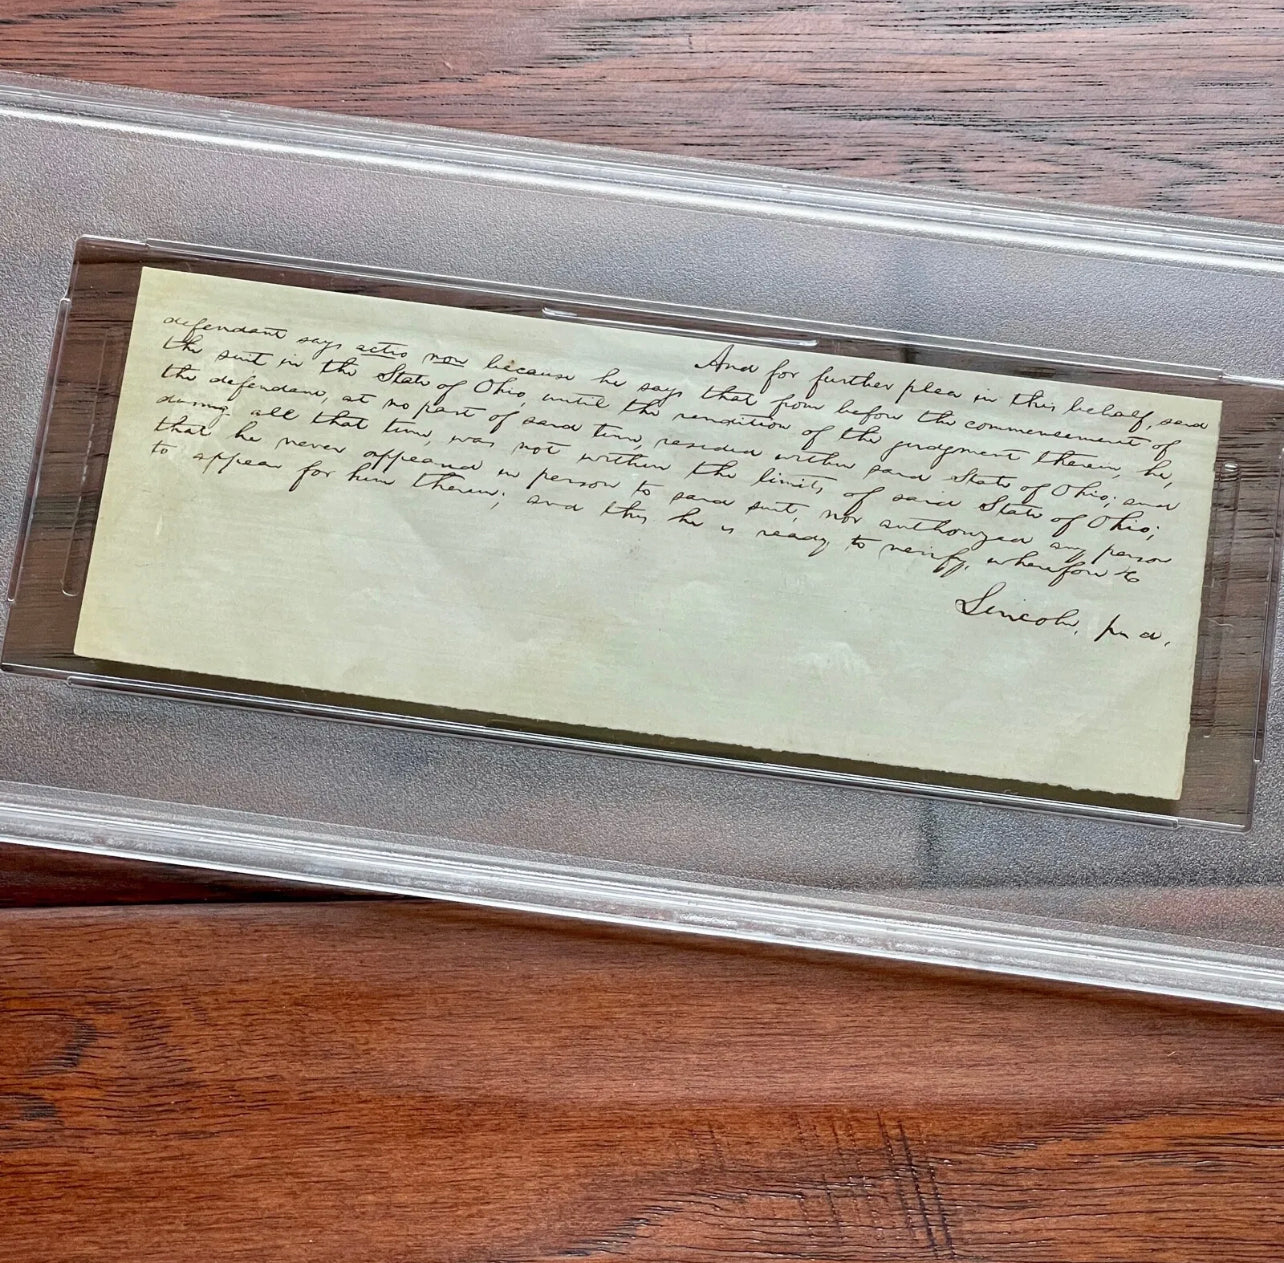 And for further plea in this behalf, said
defendant says actio non because he says that from before the commencement of
the suit in the State of Ohio, until the rendition of the judgment therein, he,
the defendant, at no part of said time, resided within said State of Ohio; and
during all that time, was not within the limits of said State of Ohio;
that he never appeared in person to said suit, nor authorized any person
to appear for him therein; and this he is ready to verify, wherefore &c
Lincoln, p. d.